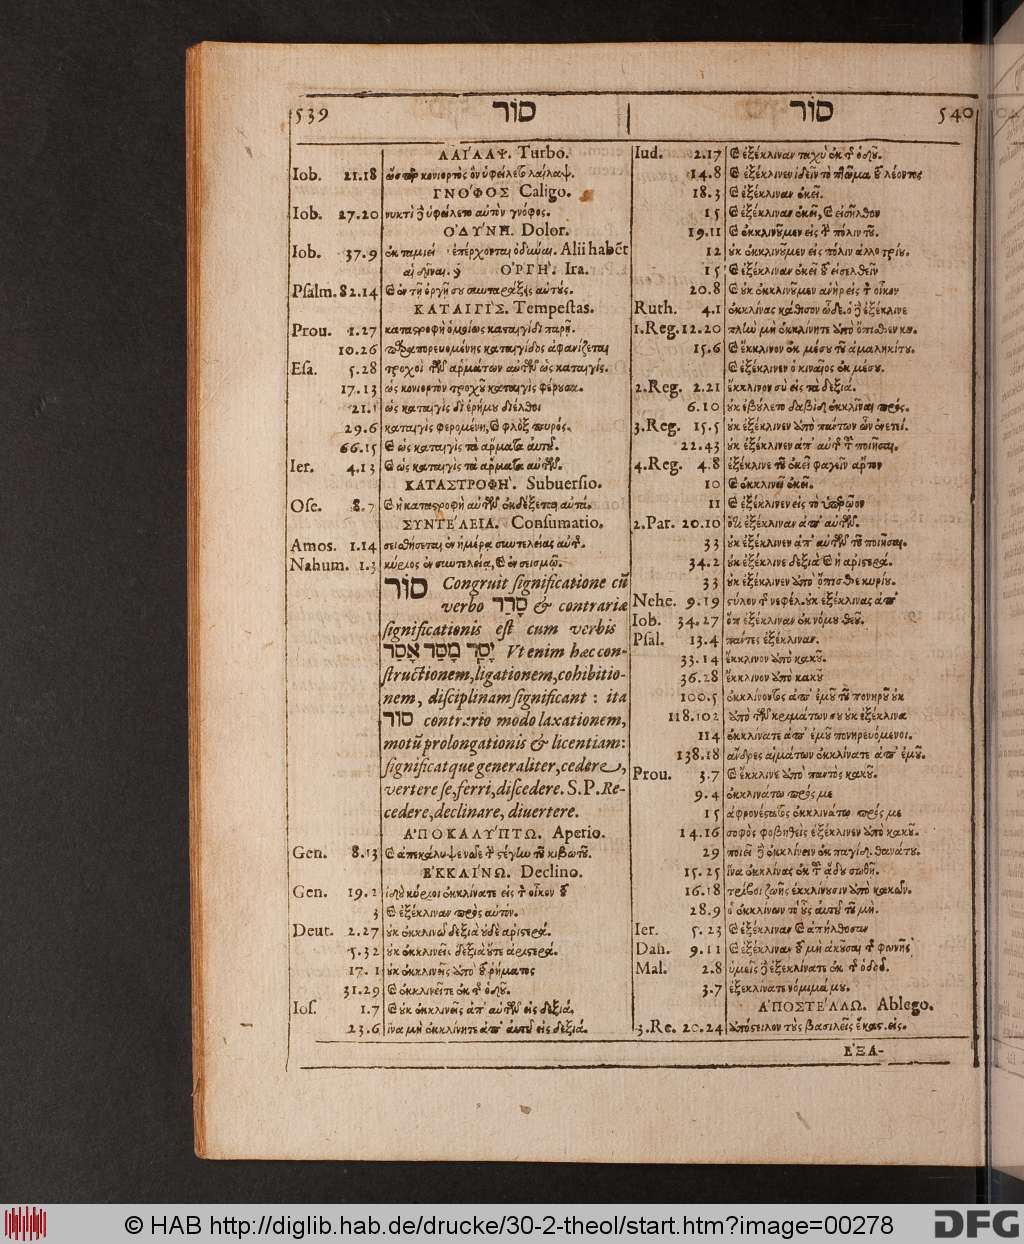 539 סור
ΛΑΙ͂ΛΑΨ. Turbo.
Iob. 21.18 κονιορτὸς ὃν ὑφείλετο λαῖλαψ.
ΓΝΌΦΟΣ Caligo.
Iob. 27.20 νυκτὶ ὑφείλετο αὐτὸν γνόφος.
ΟΔΎΝΗ. Dolor.
Iob. 37.9 ἐκ ταμιεί ἐπέρχονται ὀδῦναι. Alii habēt
ΟΡΓῊ. Ira.
Psalm. 82.14 ἐν τῇ ὀργῇ σου συνταράξεις αὐτούς.
ΚΑΤΑΙΓῚΣ. Tempestas.
Prou. 1.27 καταστροφὴ ὁμοίως καταιγίδι παρῇ.
10.26 παραπορευομένης καταιγίδος ἀφανίζεται
Esa. 5.28 τροχοὶ τῶν ἁρμάτων αὐτῶν ὡς καταιγίς.
17.13 ὡς κονιορτὸν τροχοῦ καταιγὶς φέρουσα.
21.1 ὡς καταιγὶς δι ἐρήμου διέλθοι
29.6 καταιγὶς φερομένη, καὶ φλὸξ πυρός.
66.15 καὶ ὡς καταιγὶς τὰ ἅρματα αὐτοῦ.
Ier. 4.13 καὶ ὡς καταιγὶς τὰ ἅρματα αὐτῶν.
ΚΑΤΑΣΤΡΟΦῊ. Subuersio.
Ose. 8.7 καὶ ἡ καταστροφὴ αὐτῶν ἐκδέξεται αὐτά.
ΣΥΝΤΈΛΕΙΑ. Consumatio.
Amos. 1.14 σεισθήσεται ἐν ἡμέρᾳ συντελείας αὐτῆς.
Nahum. 1.3 κύριος ἐν συντελείᾳ, καὶ ἐν σεισμῷ.
סור Congruit significatione cū
verbo סָרַר & contrariæ
significationis est cum verbis
יָסַר מָסַר אָסַר Vt enim hæc con-
structionem, ligationem, cohibitio-
nem, disciplinam significant : ita
סור contrario modo laxationem,
motū prolongationis & licentiam:
significatque generaliter, cedere,
vertere se, ferri, discedere. S.P. Re-
cedere, declinare, diuertere.
ἈΠΟΚΑΛΎΠΤΩ. Aperio.
Gen. 8.13 καὶ ἀπεκάλυψε νῶε τὴν στέγην τοῦ κιβωτοῦ.
ἘΚΚΛΊΝΩ. Declino.
Gen. 19.2 ἰδοὺ κύριοι ἐκκλίνατε εἰς τὸν οἶκον τοῦ
3 καὶ ἐξέκλιναν πρὸς αὐτόν.
Deut. 2.27 οὐκ ἐκκλινῶ δεξιὰ οὐδὲ ἀριστερά.
5.32 οὐκ ἐκκλινεῖς δεξιὰ οὔτε ἀριστερά.
17.1 οὐκ ἐκκλινεῖς ἀπὸ τοῦ ῥήματος
31.29 καὶ ἐκκλινεῖτε ἐκ τῆς ὁδοῦ.
Ios. 1.7 καὶ οὐκ ἐκκλινεῖς ἀπ' αὐτῶν εἰς δεξιά.
23.6 ἵνα μὴ ἐκκλίνητε ἀπ' αὐτοῦ εἰς δεξιά.
סור 540
Iud. 2.17 καὶ ἐξέκλιναν ταχὺ ἐκ τῆς ὁδοῦ.
14.8 καὶ ἐξέκλινεν ἰδεῖν τὸ πτῶμα τοῦ λέοντος
18.3 καὶ ἐξέκλιναν ἐκεῖ.
15 καὶ ἐξέκλιναν ἐκεῖ, καὶ εἰσῆλθον
19.11 καὶ ἐκκλινοῦμεν εἰς τὴν πόλιν τοῦ.
12 οὐκ ἐκκλινοῦμεν εἰς πόλιν ἀλλοτρίου.
15 καὶ ἐξέκλιναν ἐκεῖ τοῦ εἰσελθεῖν
20.8 καὶ οὐκ ἐκκλινοῦμεν ἀνὴρ εἰς τὸν οἶκον
Ruth. 4.1 ἐκκλίνας κάθισον ὧδε. ὁ δὲ ἐξέκλινε
1.Reg. 12.20 πλὴν μὴ ἐκκλίνητε ἀπὸ ὄπισθεν κυ.
15.6 καὶ ἔκκλινον ἐκ μέσου τοῦ ἀμαληκίτου.
καὶ ἐξέκλινεν ὁ κιναῖος ἐκ μέσου.
2.Reg. 2.21 ἔκκλινον σὺ εἰς τὰ δεξιά.
6.10 οὐκ ἐβούλετο δαβὶδ ἐκκλῖναι πρός.
3.Reg. 15.5 οὐκ ἐξέκλινεν ἀπὸ πάντων ὧν ἐνετεί.
22.43 οὐκ ἐξέκλινεν ἀπ' αὐτῆς τοῦ ποιῆσαι.
4.Reg. 4.8 ἐξέκλινε τοῦ ἐκεῖ φαγεῖν ἄρτον
10 καὶ ἐκκλινεῖ ἐκεῖ.
11 καὶ ἐξέκλινεν εἰς τὸ ὑπερῷον
2.Par. 20.10 ὅτι ἐξέκλιναν ἀπ' αὐτῶν.
33 οὐκ ἐξέκλινεν ἀπ' αὐτῶν τοῦ ποιῆσαι.
34.2 οὐκ ἐξέκλινε δεξιὰ καὶ ἀριστερά.
33 οὐκ ἐξέκλινεν ἀπὸ ὄπισθε κυρίου.
Nehe. 9.19 στύλον τῆς νεφέλ. οὐκ ἐξέκλινας ἀπ'
Iob. 34.27 ὅτι ἐξέκλιναν ἐκ νόμου θεοῦ.
Psal. 13.4 πάντες ἐξέκλιναν.
33.14 ἔκκλινον ἀπὸ κακοῦ.
36.28 ἔκκλινον ἀπὸ κακοῦ
100.5 ἐκκλίνοντος ἀπ' ἐμοῦ τοῦ πονηροῦ οὐκ
118.102 ἀπὸ τῶν κριμάτων σου οὐκ ἐξέκλινα
114 ἐκκλίνατε ἀπ' ἐμοῦ πονηρευόμενοι.
138.18 ἄνδρες αἱμάτων ἐκκλίνατε ἀπ' ἐμοῦ.
Prou. 3.7 καὶ ἔκκλινε ἀπὸ παντὸς κακοῦ.
9.4 ἐκκλινάτω πρός με
15 ἀφρονέστατος ἐκκλινάτω πρός με
14.16 σοφὸς φοβηθεὶς ἐξέκλινεν ἀπὸ κακοῦ.
29 ποιεῖ δὲ ἐκκλίνειν ἐκ παγίδος θανάτου.
15.25 ἵνα ἐκκλίνας ἐκ τοῦ ᾅδου σωθῇ.
16.18 τρίβοι ζωῆς ἐκκλίνουσιν ἀπὸ κακῶν.
28.9 ὁ ἐκκλίνων τὸ οὖς αὐτοῦ τοῦ μὴ.
Ier. 5.23 καὶ ἐξέκλιναν καὶ ἀπήλθοσαν
Dan. 9.11 καὶ ἐξέκλιναν τοῦ μὴ ἀκοῦσαι τῆς φωνῆς
Mal. 2.8 ὑμεῖς δὲ ἐξεκλίνατε ἐκ τῆς ὁδοῦ.
3.7 ἐξεκλίνατε νόμιμά μου.
ἈΠΟΣΤΈΛΛΩ. Ablego.
3.Re. 20.24 ἀπόστειλον τοὺς βασιλεῖς ἕκαστ. εἰς.
ἘΞΑ-
© HAB http://diglib.hab.de/drucke/30-2-theol/start.htm?image=00278
DFG